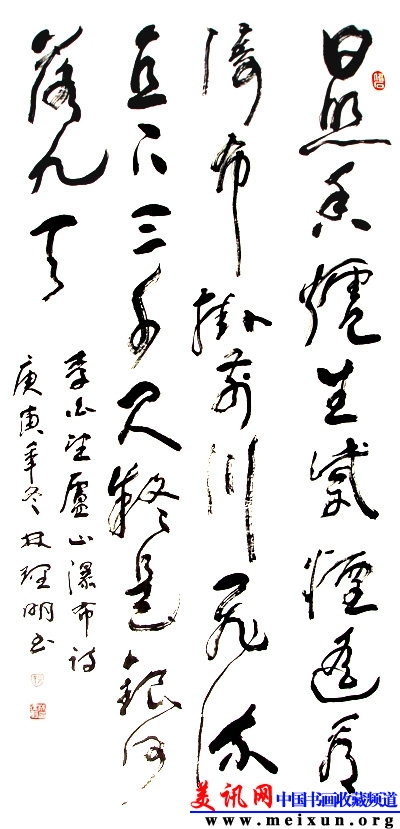 日照香爐生紫煙遙看
瀑布掛前川飛流
直下三千尺疑是銀河
落九天
李白望廬山瀑布詩
庚寅年冬林理明书
美讯网中国书画收藏频道
www.meixun.org